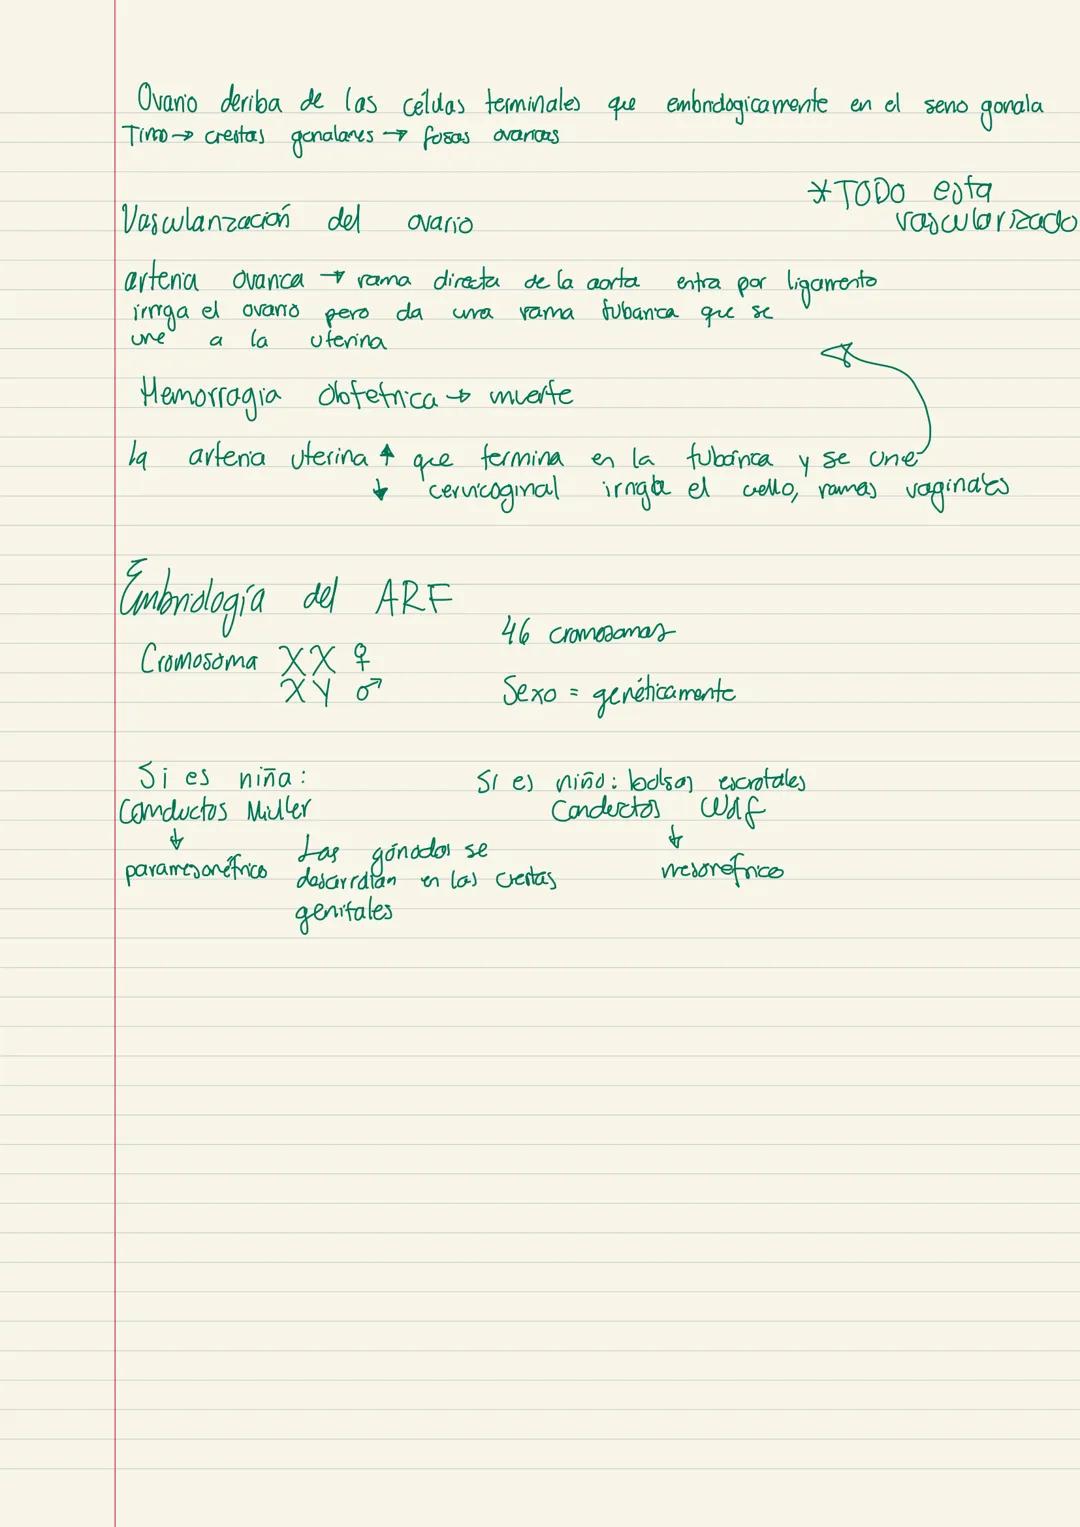 Ovario deriba de las células terminales que embriologicamente en el seno gonala
Timo → crestas gonalares → fosas ovaricas
*TODO esta
vascularizado
Vascularización del ovario
arteria ovarica → rama directa de la aorta entra por ligamento
irriga el ovario pero da una rama tubarica que se
une a la uterina
Hemorragia obstetrica → muerte
la arteria uterina ↑ que termina en la tubárica y se une
↓ cervicoginal irriga el cuello, ramas vaginales
Embriología del ARF
46 cromosomas
Cromosoma XX ♀
XY ♂
Sexo = genéticamente
Si es niña:
Si es niño: bolsas escrotales
Conductos Müller
Conductos Wolf
↓
↓
paramesonéfrico
mesonefrico
Las gónadas se
desarrollan en las crestas
genitales